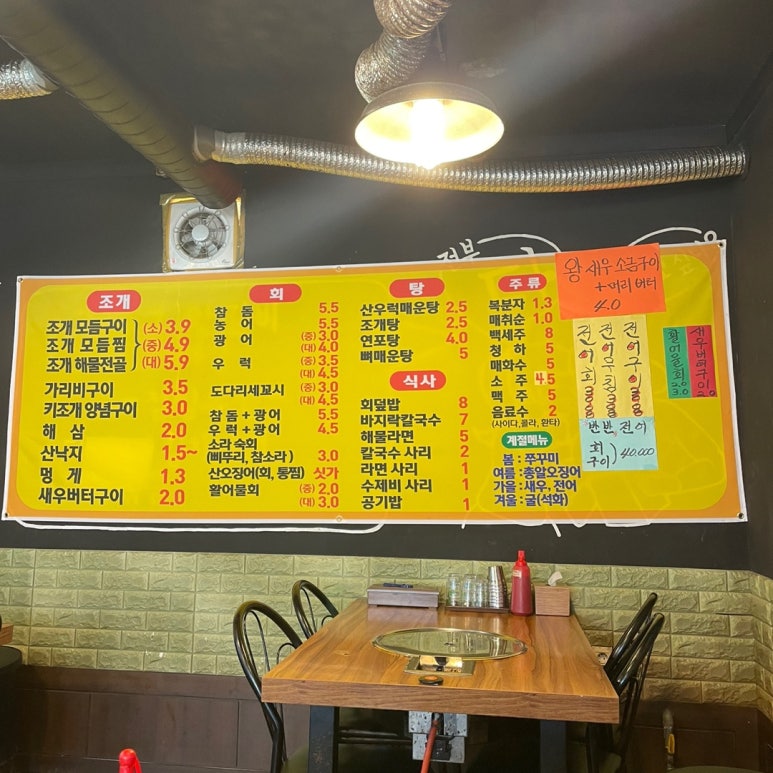 조개
조개 모듬구이 (소) 3.9
조개 모듬 찜 (중) 4.9
조개 해물전골 (대) 5.9
가리비구이 3.5
키조개 양념구이 3.0
해 삼 2.0
산낙지 1.5~
멍 게 1.3
새우버터구이 2.0
회
참 돔 5.5
농 어 5.5
광 어 (중) 3.0
(대) 4.0
우 럭 (중) 3.5
(대) 4.5
도다리세꼬시 (중) 3.0
(대) 4.5
참 돔 + 광어 5.5
우 럭 + 광어 4.5
소라 숙회
(삐뚜리, 참소라) 3.0
산오징어(회, 통찜) 싯가
활어물회 (중) 2.0
(대) 3.0
탕
산우럭매운탕 2.5
조개탕 2.5
연포탕 4.0
뼈매운탕 5
식사
회덮밥 8
바지락칼국수 7
해물라면 5
칼국수 사리 2
라면 사리 1
수제비 사리 1
공기밥 1
주류
복분자 1.3
매취순 1.0
백세주 8
청 하 5
매화수 5
소 주 4.5
맥 주 5
음료수 2
(사이다,콜라,환타)
계절메뉴
봄 : 쭈꾸미
여름 : 총알오징어
가을 : 새우, 전어
겨울 : 굴(석화)
왕 새우 소금구이
+머리 버터
4.0
전어회
전어무침
전어구이
반반 전어
회
구이) 40,000
활어물회 2.0 3.0
새우버터구이 2.0